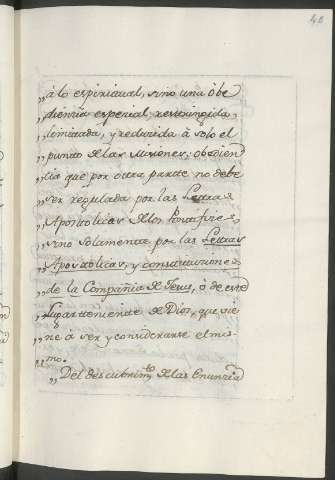 40
„à lo espiritual, sino una òbe
„diencia especial, restringida,
„limitada, y reducida à solo el
„punto de las Misiones; obedien
„cia que por otra parte no debe
„ser regulada por las Letras
„Apostolicas de los Pontifices
„sino solamente por las Letras
„Apostolicas, y constituciones
„de la Compañia de Jesus, ò de este
„Lugarteniente de Dios, que vie
„ne à ser y considerarse el mis
„mo.
„Del descubrim.to de las Enuncia